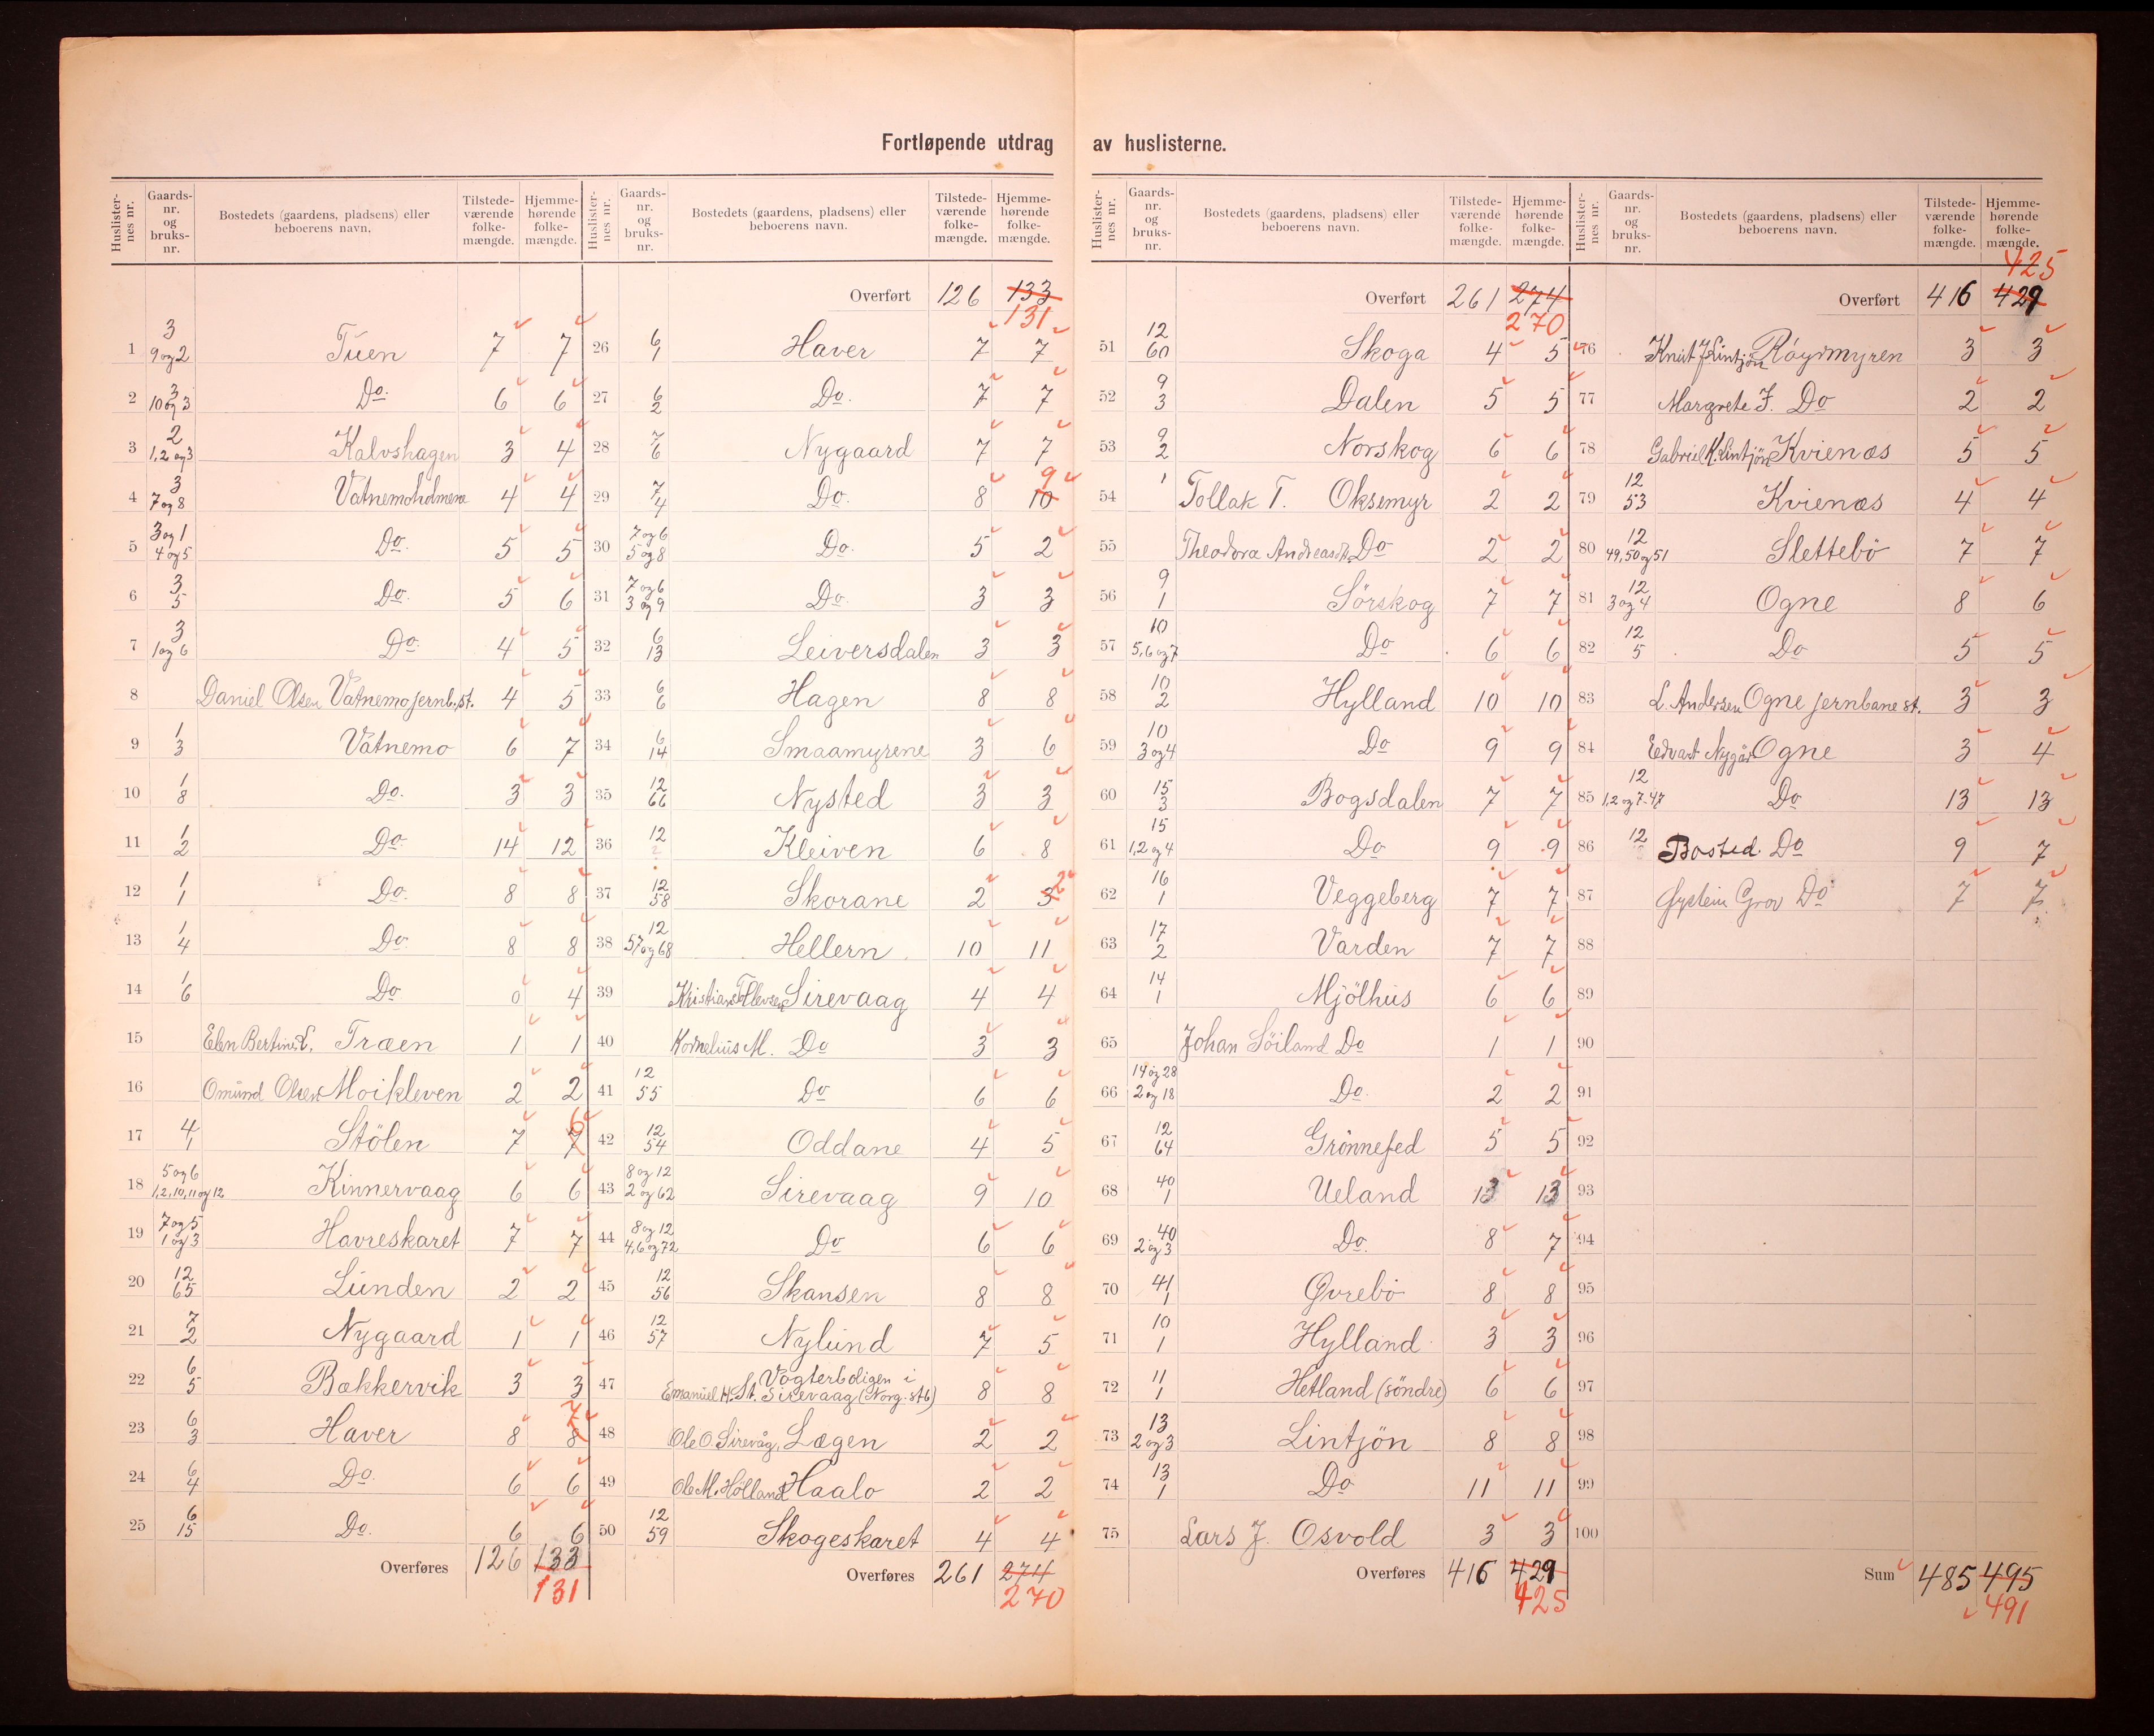 Fortløpende utdrag av huslisterne.
Huslister-nes nr. | Gaards-nr. og bruks-nr. | Bostedets (gaardens, pladsens) eller beboerens navn. | Tilstede-værende folke-mængde. | Hjemme-hørende folke-mængde.
1 | 3 9 og 2 | Tuen | 7 | 7
2 | 3 10 og 3 | Do. | 6 | 6
3 | 2 1, 2 og 3 | Kalvshagen | 3 | 4
4 | 3 7 og 8 | Vatnemoholmene | 4 | 4
5 | 3 og 1 4 og 5 | Do. | 5 | 5
6 | 3 5 | Do. | 5 | 6
7 | 3 1 og 6 | Do. | 4 | 5
8 | Daniel Olsen Vatnemo jernb.st. | 4 | 5
9 | 1 3 | Vatnemo | 6 | 7
10 | 1 8 | Do. | 3 | 3
11 | 1 2 | Do. | 14 | 12
12 | 1 1 | Do. | 8 | 8
13 | 1 4 | Do. | 8 | 8
14 | 1 6 | Do | 0 | 4
15 | Elen Bertine L. Træen | 1 | 1
16 | Omund Olsen Moikleven | 2 | 2
17 | 4 1 | Stölen | 7 | 7 6
18 | 5 og 6 1, 2, 10, 11 og 12 | Kinnervaag | 6 | 6
19 | 7 og 5 1 og 3 | Havreskaret | 7 | 7
20 | 12 65 | Lunden | 2 | 2
21 | 7 2 | Nygaard | 1 | 1
22 | 6 5 | Bakkervik | 3 | 3
23 | 6 3 | Haver | 8 | 8 7
24 | 6 4 | Do. | 6 | 6
25 | 6 15 | Do. | 6 | 6
Overføres | 126 | 133
131
Huslister-nes nr. | Gaards-nr. og bruks-nr. | Bostedets (gaardens, pladsens) eller beboerens navn. | Tilstede-værende folke-mængde. | Hjemme-hørende folke-mængde.
Overført | 126 | 133
131
26 | 6 1 | Haver | 7 | 7
27 | 6 2 | Do. | 7 | 7
28 | 7 6 | Nygaard | 7 | 7
29 | 7 4 | Do. | 8 | 10 9
30 | 7 og 6 5 og 8 | Do. | 5 | 2
31 | 7 og 6 3 og 9 | Do. | 3 | 3
32 | 6 13 | Leiversdalen | 3 | 3
33 | 6 6 | Hagen | 8 | 8
34 | 6 14 | Smaamyrene | 3 | 6
35 | 12 66 | Nysted | 3 | 3
36 | 12 | Kleiven | 6 | 8
37 | 12 58 | Skorane | 2 | 3 2
38 | 12 57 og 68 | Hellern | 10 | 11
39 | Kristian Tollevsen Sirevaag | 4 | 4
40 | Kornelius M. Do | 3 | 3
41 | 12 55 | Do | 6 | 6
42 | 12 54 | Oddane | 4 | 5
43 | 8 og 12 2 og 62 | Sirevaag | 9 | 10
44 | 8 og 12 4, 6 og 72 | Do | 6 | 6
45 | 12 56 | Skansen | 8 | 8
46 | 12 57 | Nylund | 7 | 5
47 | Emanuel H. St. Vogterboligen i Sirevaag (Norg. stb) | 8 | 8
48 | Ole O. Sirevåg, Lægen | 2 | 2
49 | Ole M. Hølland Haalo | 2 | 2
50 | 12 59 | Skogeskaret | 4 | 4
Overføres | 261 | 274
270
Huslister-nes nr. | Gaards-nr. og bruks-nr. | Bostedets (gaardens, pladsens) eller beboerens navn. | Tilstede-værende folke-mængde. | Hjemme-hørende folke-mængde.
Overført | 261 | 274
270
51 | 12 60 | Skoga | 4 | 5
52 | 9 3 | Dalen | 5 | 5
53 | 9 2 | Norskog | 6 | 6
54 | 1 | Tollak T. Oksemyr | 2 | 2
55 | Theodora Andreasdtr. Do | 2 | 2
56 | 9 1 | Sörskog | 7 | 7
57 | 10 5, 6 og 7 | Do | 6 | 6
58 | 10 2 | Hylland | 10 | 10
59 | 10 3 og 4 | Do | 9 | 9
60 | 15 3 | Bogsdalen | 7 | 7
61 | 15 1, 2 og 4 | Do | 9 | 9
62 | 16 1 | Veggeberg | 7 | 7
63 | 17 2 | Varden | 7 | 7
64 | 14 1 | Mjölhus | 6 | 6
65 | Johan Söiland Do | 1 | 1
66 | 14 og 28 2 og 18 | Do. | 2 | 2
67 | 12 64 | Grönnefed | 5 | 5
68 | 40 1 | Ueland | 13 | 13
69 | 40 2 og 3 | Do. | 8 | 7
70 | 41 1 | Øvrebö | 8 | 8
71 | 10 1 | Hylland | 3 | 3
72 | 11 1 | Hetland (söndre) | 6 | 6
73 | 13 2 og 3 | Lintjön | 8 | 8
74 | 13 1 | Do | 11 | 11
75 | Lars J. Osvold | 3 | 3
Overføres | 416 | 429
425
Huslister-nes nr. | Gaards-nr. og bruks-nr. | Bostedets (gaardens, pladsens) eller beboerens navn. | Tilstede-værende folke-mængde. | Hjemme-hørende folke-mængde.
425
Overført | 416 | 429
76 | Knut J Lintjön Röyrmyren | 3 | 3
77 | Margrete J. Do | 2 | 2
78 | Gabriel K. Lintjön Kvienæs | 5 | 5
79 | 12 53 | Kvienæs | 4 | 4
80 | 12 49, 50 og 51 | Slettebö | 7 | 7
81 | 12 3 og 4 | Ogne | 8 | 6
82 | 12 5 | Do | 5 | 5
83 | L. Andersen Ogne jernbane st. | 3 | 3
84 | Edvart Nygår Ogne | 3 | 4
85 | 12 1, 2 og 7-47 | Do | 13 | 13
86 | 12 | Bosted. Do | 9 | 7
87 | Øystein Grov Do | 7 | 7
88
89
90
91
92
93
94
95
96
97
98
99
100
Sum | 485 | 495
491